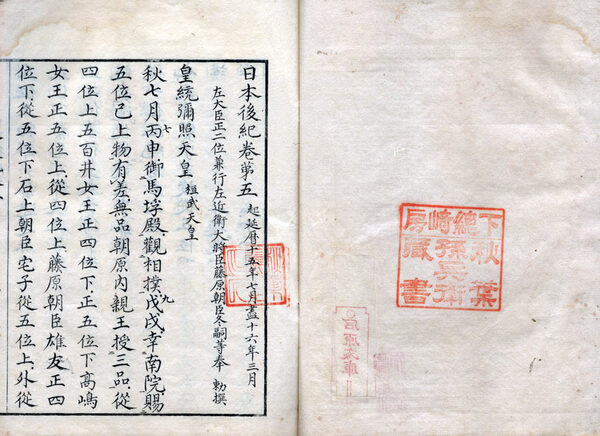 下總崎房
秋葉
孫兵衛
藏書
日本後紀卷第五 起延曆十五年七月盡十六年三月
左大臣正二位兼行左近衛大將臣藤原朝臣冬嗣等奉 勅撰
皇統彌照天皇 桓武天皇
秋七月丙申七御馬埒殿觀相撲戊戌九幸南院賜
五位已上物有差無品朝原內親王授三品從
四位上五百井女王正四位下正五位下高嶋
女王正五位上從四位上藤原朝臣雄友正四
位下從五位下石上朝臣宅子從五位上外從